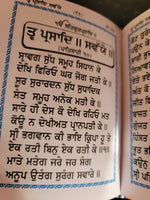 ੴ ਸਤਿਗੁਰ ਪ੍ਰਸਾਦਿ ॥
ਤ੍ਵ ਪ੍ਰਸਾਦਿ ॥ ਸਵਯੇ ॥
ਪਾਤਿਸ਼ਾਹੀ ੧੦ ॥
ਸ੍ਰਾਵਗ ਸੁੱਧ ਸਮੂਹ ਸਿਧਾਨ ਕੇ
ਦੇਖਿ ਫਿਰਿਓ ਘਰ ਜੋਗ ਜਤੀ ਕੇ ॥
ਸੂਰ ਸੁਰਾਰਦਨ ਸੁੱਧ ਸੁਧਾਦਿਕ
ਸੰਤ ਸਮੂਹ ਅਨੇਕ ਮਤੀ ਕੇ ॥
ਸਾਰੇ ਹੀ ਦੇਸ ਕੋ ਦੇਖਿ ਰਹਿਓ ਮਤ
ਕੋਊ ਨ ਦੇਖੀਅਤ ਪ੍ਰਾਨਪਤੀ ਕੇ ॥
ਸ੍ਰੀ ਭਗਵਾਨ ਕੀ ਭਾਇ ਕ੍ਰਿਪਾ ਹੂ ਤੇ
ਏਕ ਰਤੀ ਬਿਨੁ ਏਕ ਰਤੀ ਕੇ ॥੧॥
ਮਾਤੇ ਮਤੰਗ ਜਰੇ ਜਰ ਸੰਗ
ਅਨੂਪ ਉਤੰਗ ਸੁਰੰਗ ਸਵਾਰੇ ॥